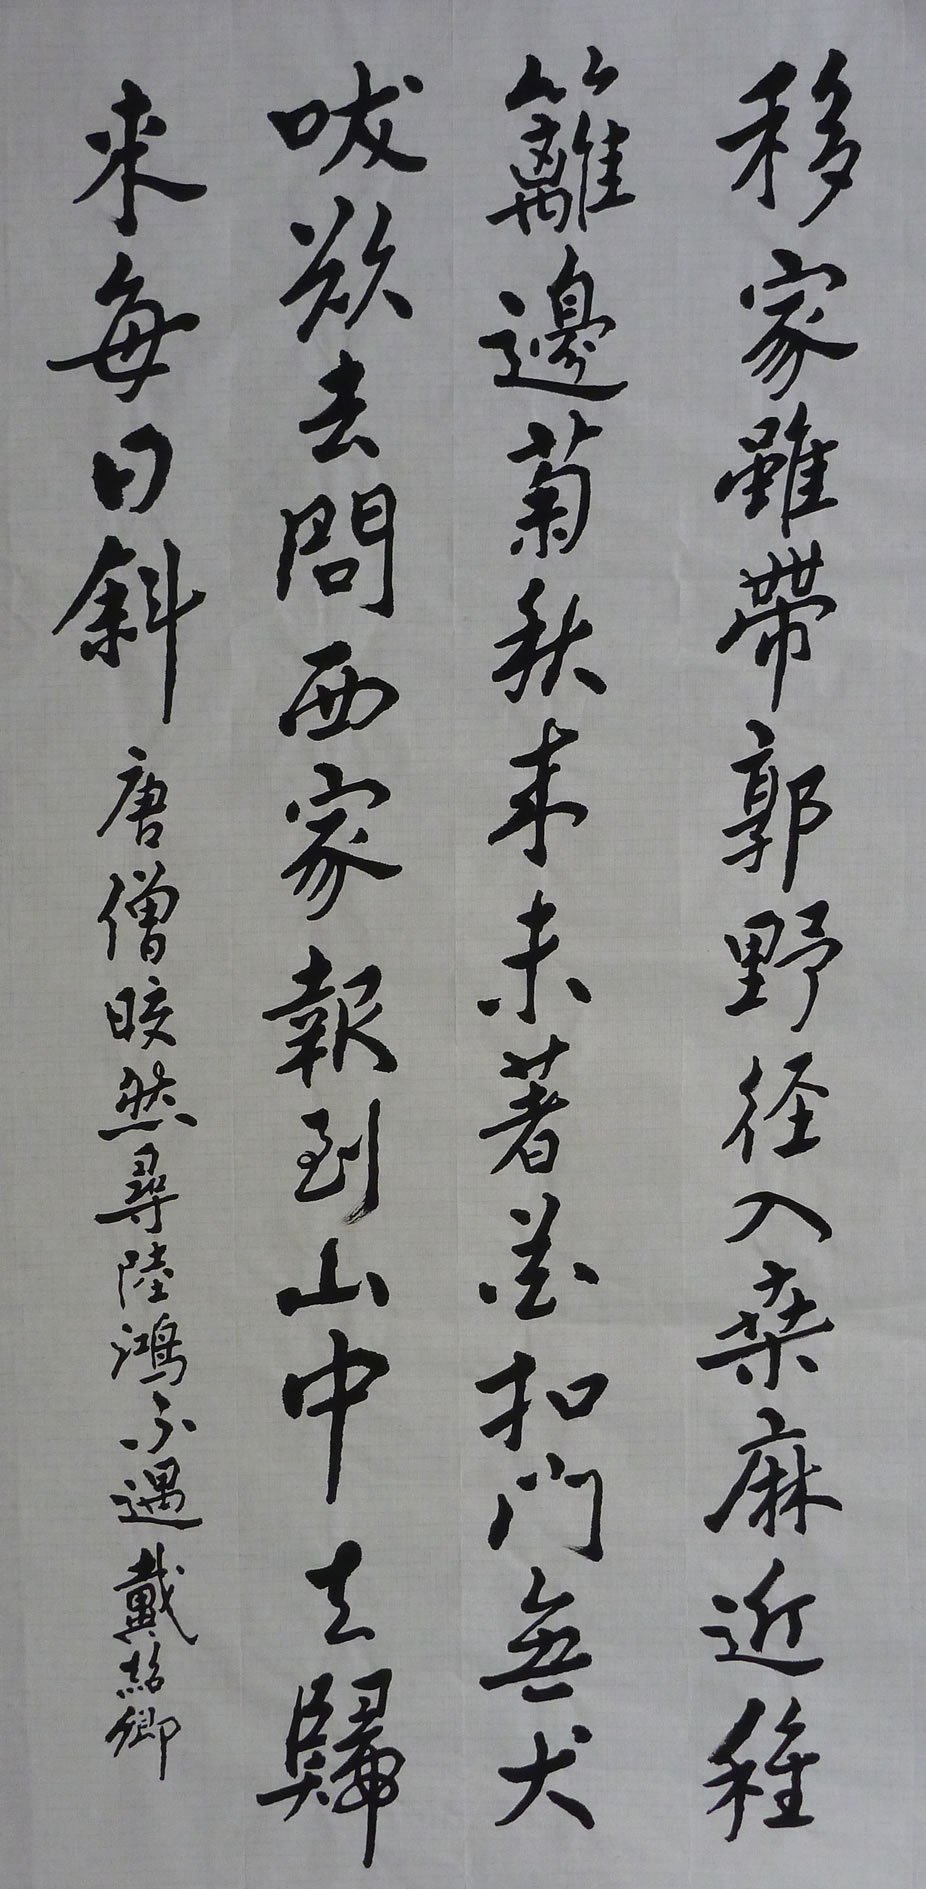 移家雖帶郭野径入桑麻近種
籬邊菊秋来未著花扣門無犬
吠欲去問西家報到山中去歸
來每日斜
唐僧皎然尋陸鴻不遇戴紹卿